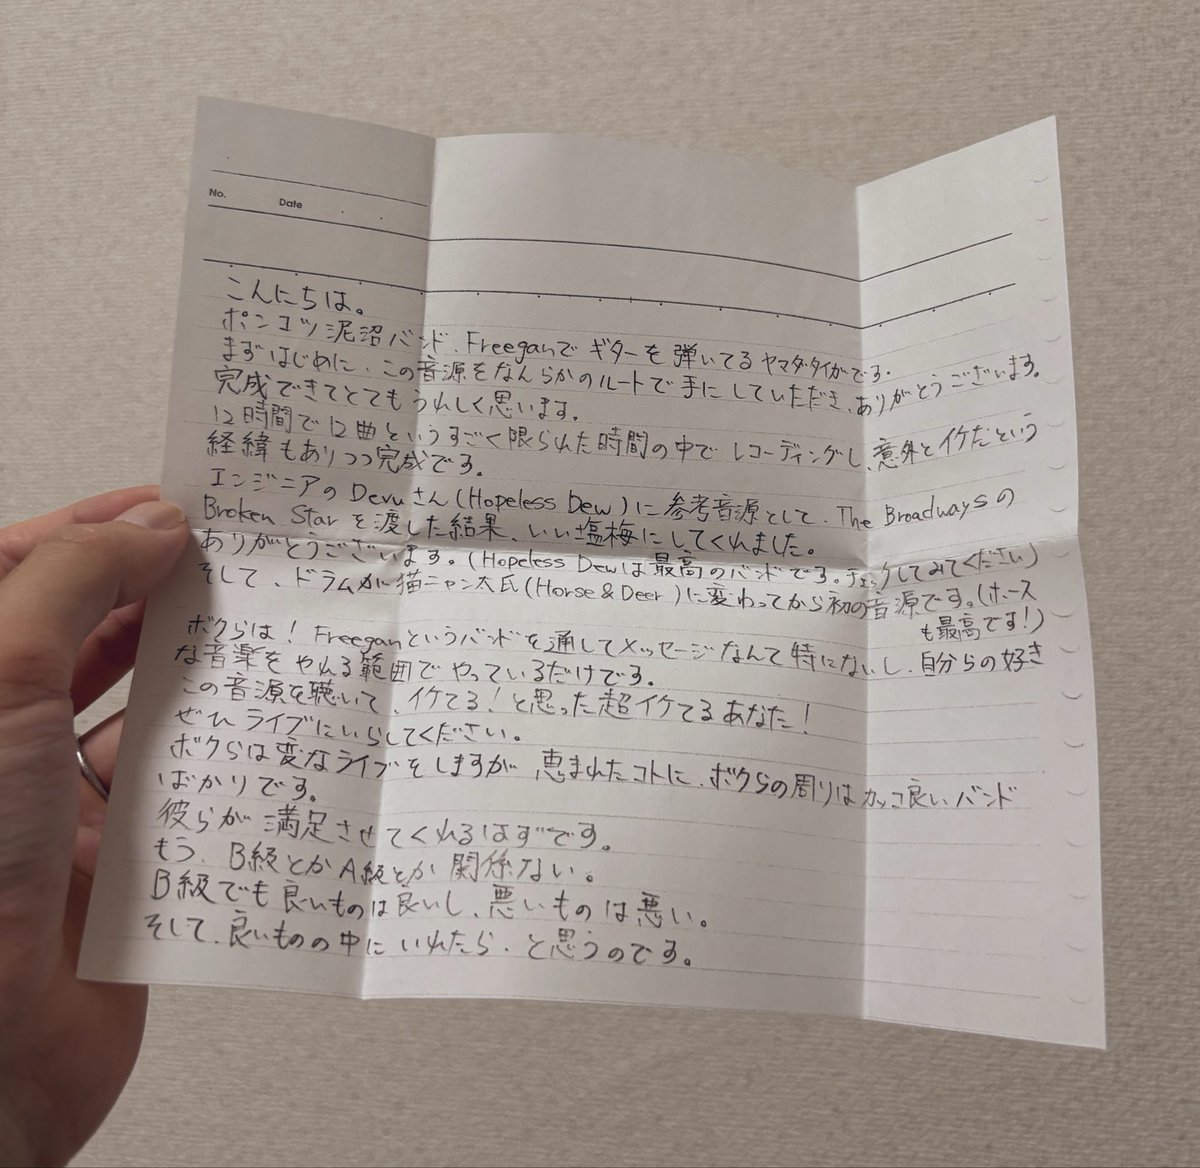 No.
Date
こんにちは。
ポンコツ泥沼バンド、Freeganでギターを弾いてるヤマダタイガです。
まずはじめに、この音源をなんらかのルートで手にしていただき、ありがとうございます。
完成できてとてもうれしく思います。
12時間で12曲というすごく限られた時間の中でレコーディングし、意外とイケたという
経緯もありつつ完成です。
エンジニアのDevuさん(Hopeless Dew)に参考音源として、The Broadwaysの
Broken Starを渡した結果、いい塩梅にしてくれました。
ありがとうございます。(Hopeless Dewは最高のバンドです。チェックしてみてください)
そして、ドラムが猫ニャン太氏(Horse&Deer)に変わってから初の音源です。(ホース
も最高です!)
ボクらは!Freeganというバンドを通してメッセージなんて特にないし、自分らの好き
な音楽をやれる範囲でやっているだけです。
この音源を聴いて、イケてる!と思った超イケてるあなた!
ぜひライブにいらしてください。
ボクらは変なライブをしますが、恵まれたコトに、ボクらの周りはカッコ良いバンド
ばかりです。
彼らが満足させてくれるはずです。
もう、B級とかA級とか関係ない。
B級でも良いものは良いし、悪いものは悪い。
そして、良いものの中にいれたら、と思うのです。